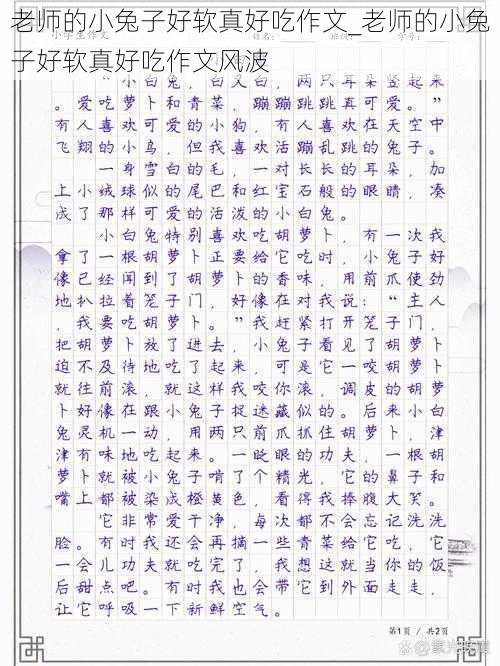 老师的小兔子好软真好吃作文_老师的小兔
子好软真好吃作文风波
小学生作文
姓名:
班级:
学号:
“小白兔,白又白,两只耳朵竖起来
。爱吃萝卜和青菜,蹦蹦跳跳真可爱。”
有人喜欢可爱的小狗,有人喜欢在天空中
飞翔的小鸟,但我喜欢活蹦乱跳的兔子。
一身雪白的毛,一对长长的耳朵,加
上小绒球似的尾巴和红宝石般的眼睛,凑
成了那样可爱的活泼的小白兔。
小白兔特别喜欢吃胡萝卜,有一次我
拿了一根胡萝卜正要给它吃时,小兔子好
像已经闻到了胡萝卜的香味,用前爪使劲
地扒拉着笼子门,好像在对我说:“主人
,我要吃胡萝卜。”我赶紧打开笼子门,
把胡萝卜放了进去,小兔子看见了胡萝卜
迫不及待地吃了起来,可是它一咬胡萝卜
就往前滚,就这样我咬你滚,调皮的胡萝
卜好像在跟小兔子捉迷藏似的。后来小白
兔灵机一动,用两只前爪抓住胡萝卜,津
津有味地吃起来。一眨眼的功夫,一根胡
萝卜就被小兔子啃了个精光,它的鼻子和
嘴上都被染成橙黄色,看得我捧腹大笑。
它非常爱干净,每次都不会忘记洗洗
脸。有时我还会再摘一些青菜给它吃,它
一会儿功夫就吃完了,我想这就当你的饭
后甜点吧。有时我也会带它到外面走走,
让它呼吸一下新鲜空气。
第1页 / 共2页